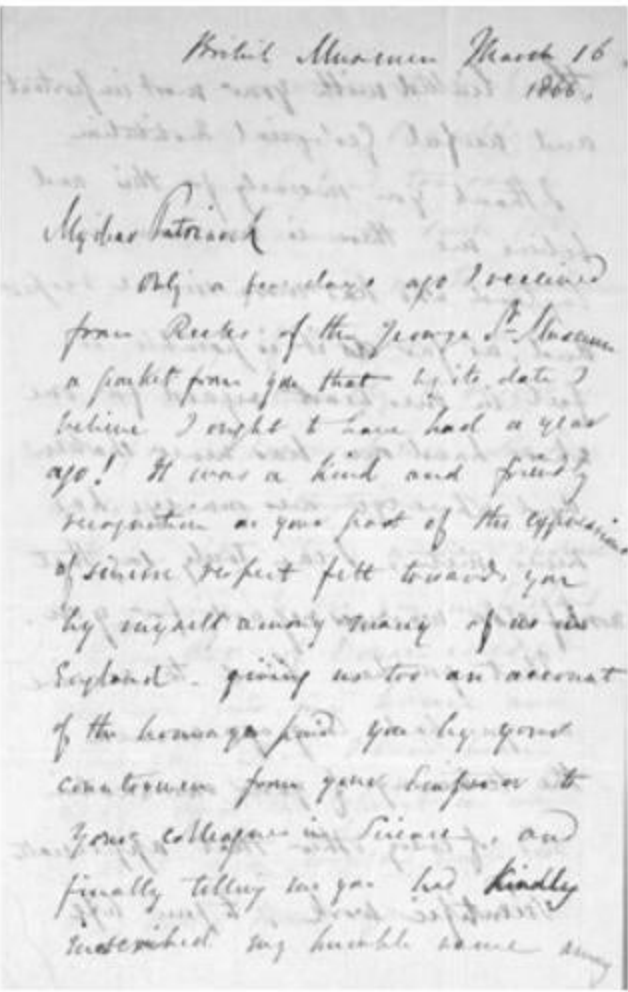 British Museum March 16
1866.
My dear
Only a few days ago I received
from Reeks of the Jermyn St. Museum
a packet from you that by its date I
believe I ought to have had a year
ago! It was a kind and friendly
recognition on your part of the expressions
of sincere respect felt towards you
by myself among many of us in
England - giving us too an account
of the homage paid you by your
countrymen from your Emperor to
your colleagues in Science, and
finally telling me you had kindly
inscribed my humble name among